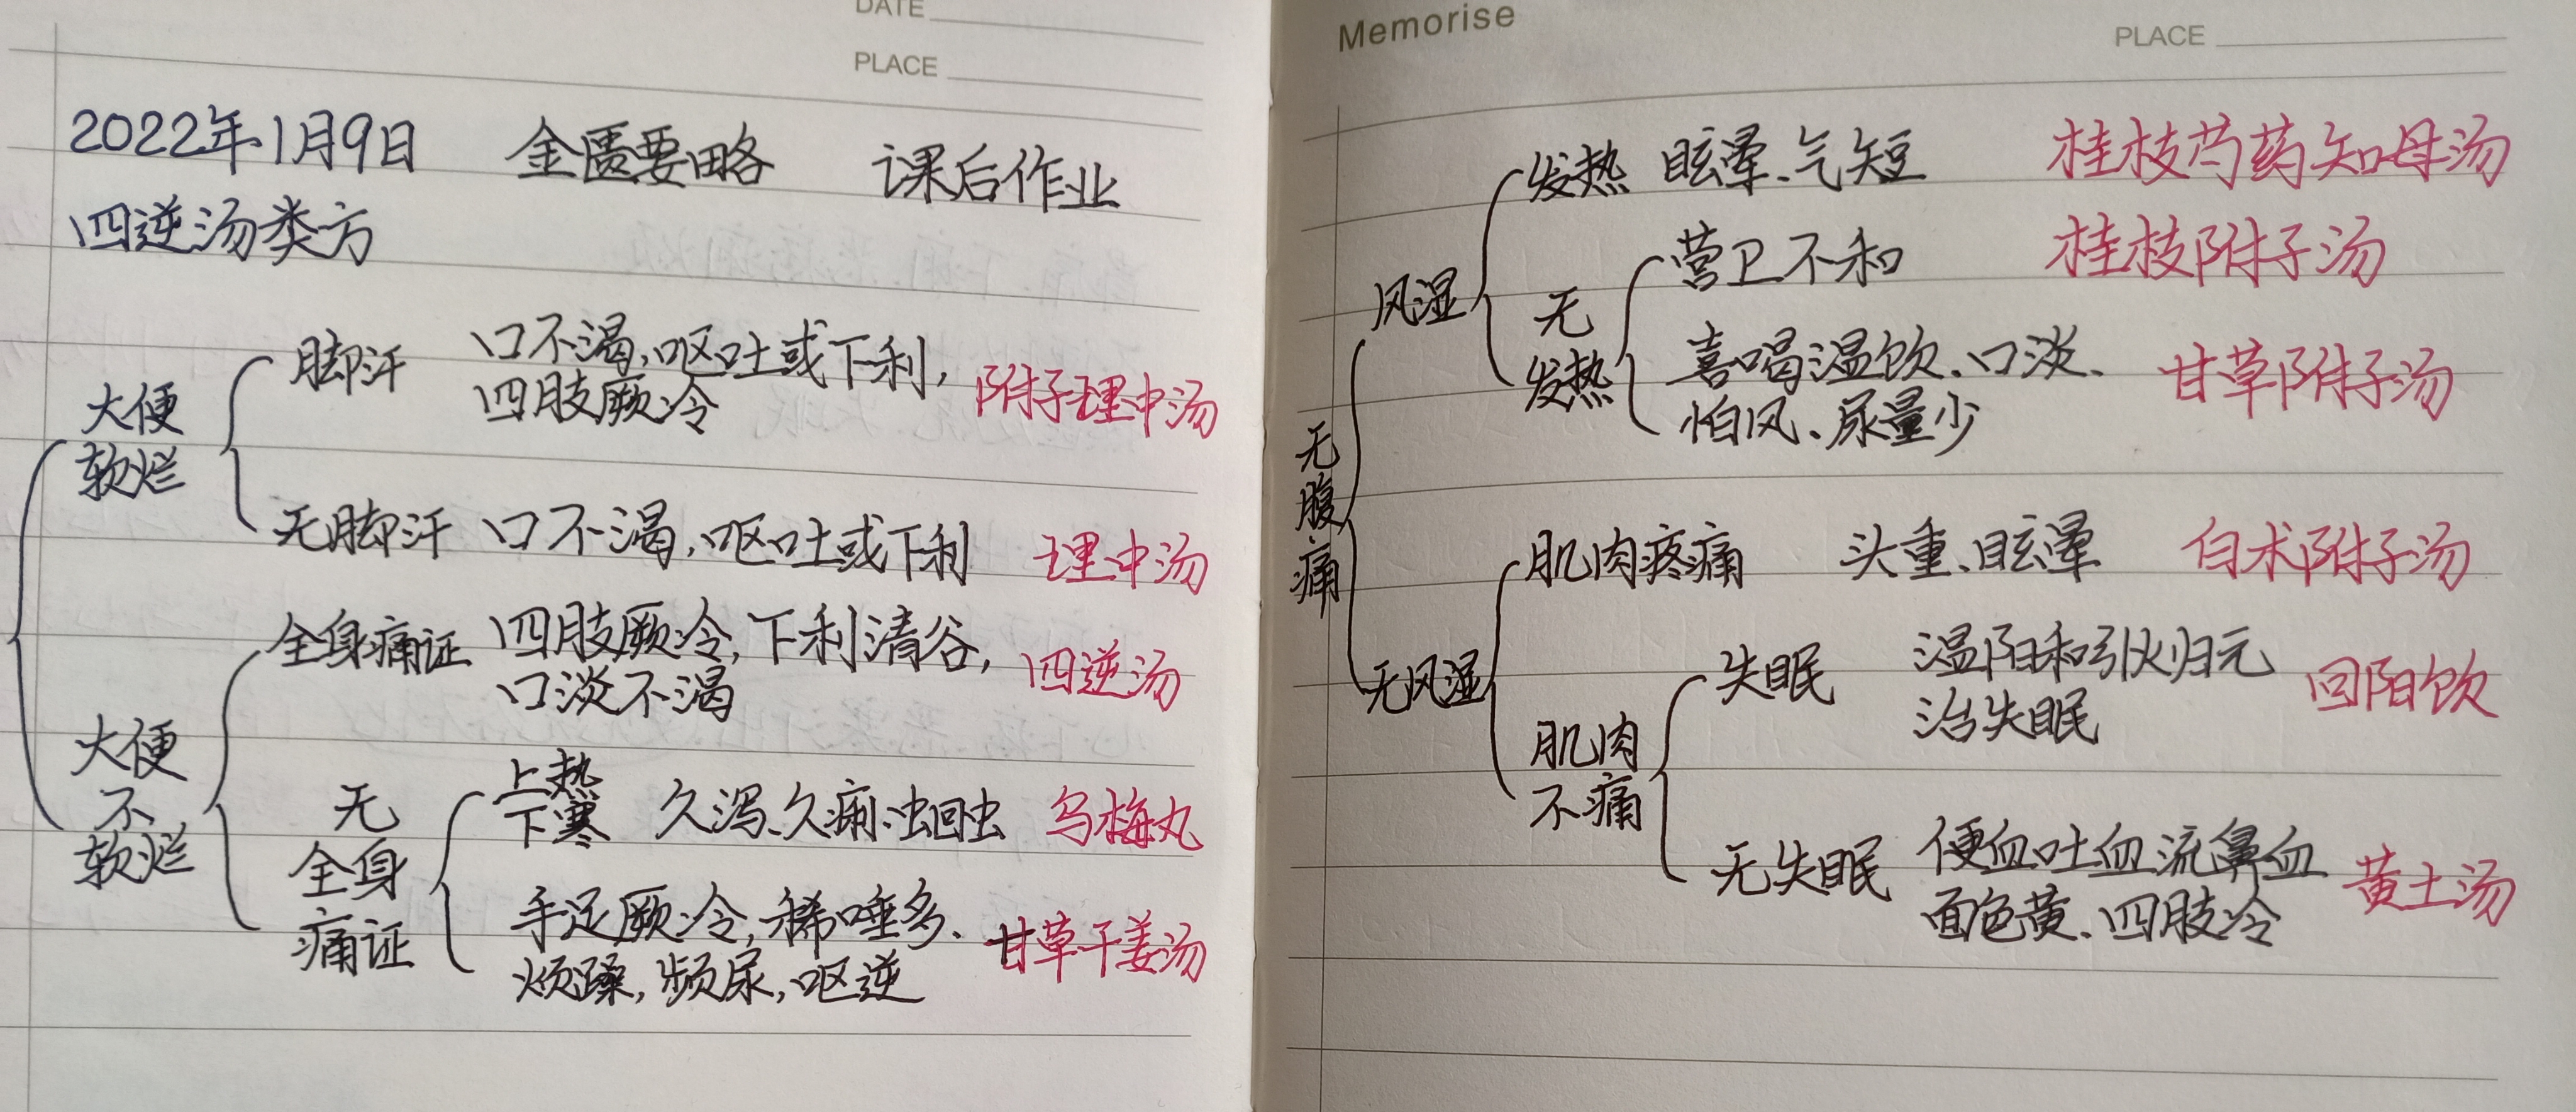 DATE
PLACE
2022年1月9日 金匮要略 课后作业
四逆汤类方
大便
软烂
脚汗 口不渴,呕吐或下利,
四肢厥冷
附子理中汤
无脚汗 口不渴,呕吐或下利 理中汤
大便
不
软烂
全身痛证 四肢厥冷,下利清谷,
口淡不渴
四逆汤
无
全身
痛证
上热
下寒
久泻、久痢、蛔虫 乌梅丸
手足厥冷,稀唾多、
烦躁,频尿,呕逆
甘草干姜汤
Memorise
PLACE
无
腹
痛
风湿
发热 眩晕、气短 桂枝芍药知母汤
无
发热
营卫不和 桂枝附子汤
喜喝温饮、口淡、
怕风、尿量少
甘草附子汤
无风湿
肌肉疼痛 头重、眩晕 白术附子汤
肌肉
不痛
失眠 温阳和引火归元
治失眠
回阳饮
无失眠 便血吐血流鼻血
面色黄、四肢冷
黄土汤